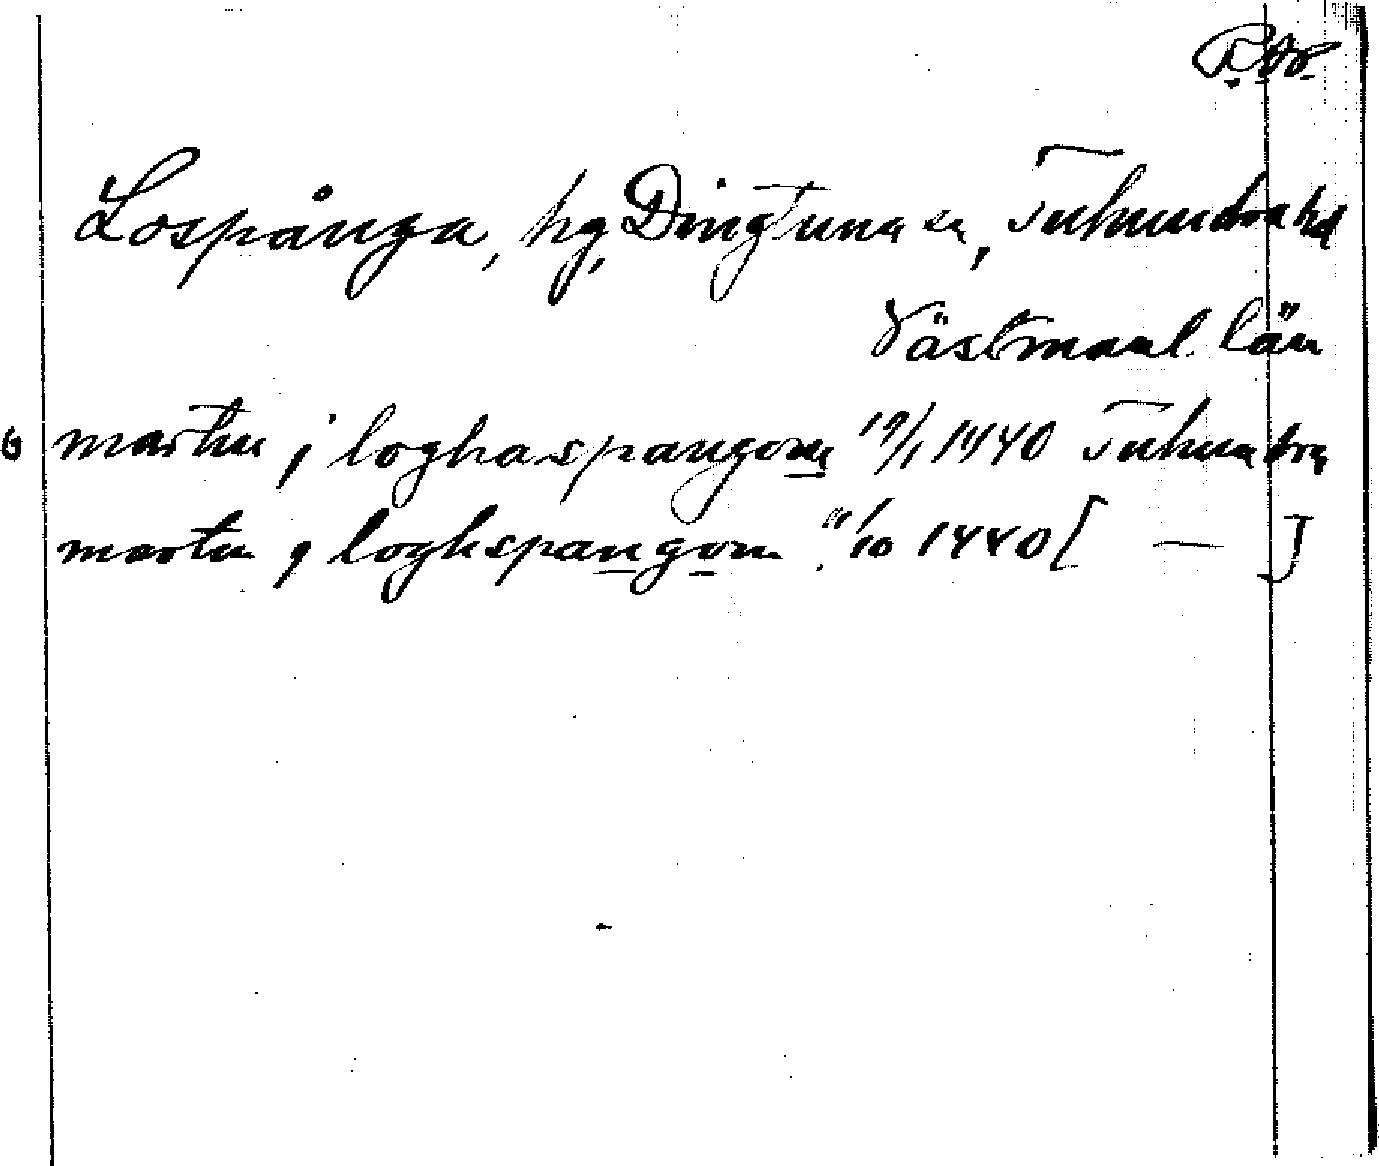 Lospånga, hg, Dingtuna sn, Tuhundra hd
Västmanl. län
martin j loghaspangom 19/1 1440 Tuhundra
martin j loghspangom 11/10 1440 [ — ]